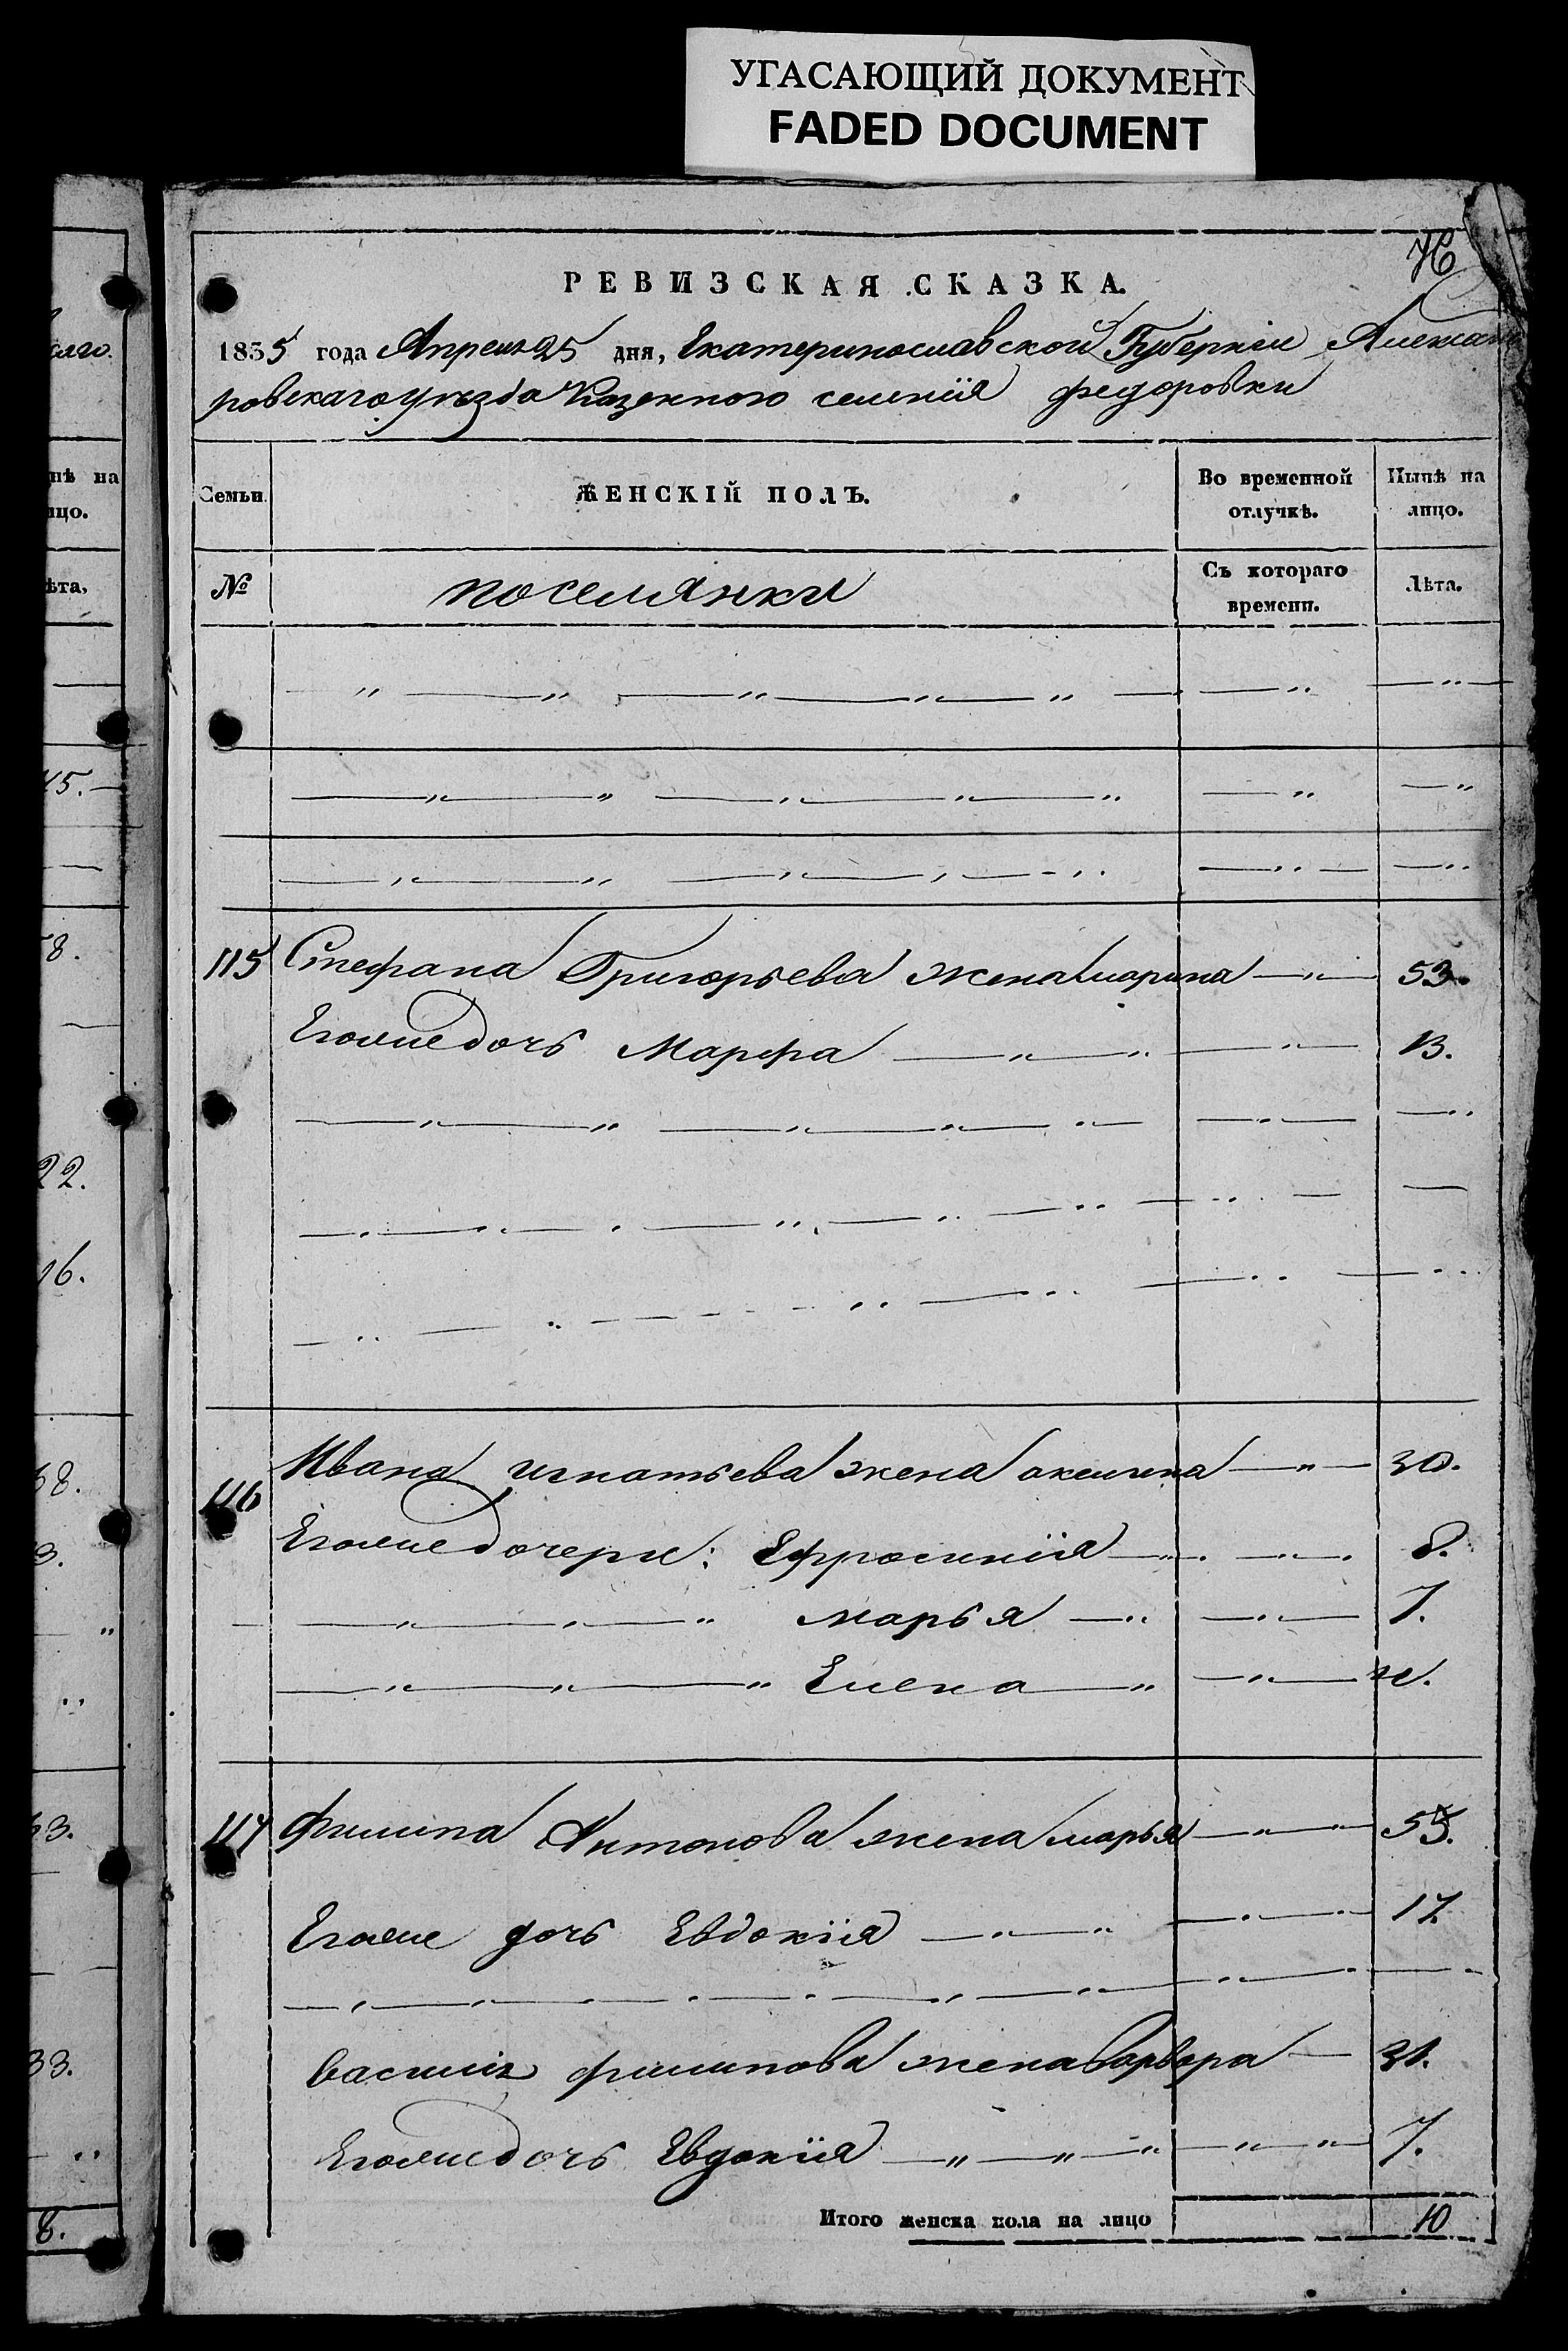 УГАСАЮЩИЙ ДОКУМЕНТ
FADED DOCUMENT
РЕВИЗСКАЯ СКАЗКА.
1855 года Апреля 25 дня, Екатеринославской Губерніи Александ
ровскаго уѣзда Казенного селенія Федоровки
Семьи. ЖЕНСКІЙ ПОЛЪ. Во временной отлучкѣ. Нынѣ на лицо.
№ поселянки Съ котораго времени. Лѣта.
115 Стефана Григорьева жена марина — " — 53.
Егоже дочь Марфа — " — " — " — 13.
116 Ивана игнатьева жена аксиния — " — 30.
Егоже дочери: Ефросинія — " — " — 8.
— " — " — " марья — " — " — 7.
— " — " — " Елена — " — " —
117 Филипа Антонова жена марья — " — " — 55.
Егоже дочь Евдокія — " — " — " — 17.
василія филипова жена варвара — 31.
Егоже дочь Евдокія — " — " — " — " — " — 7.
Итого женска пола на лицо 10
нѣ на
ицо.
ѣта,
45.
8.
22.
16.
8.
3.
3.
33.
8.